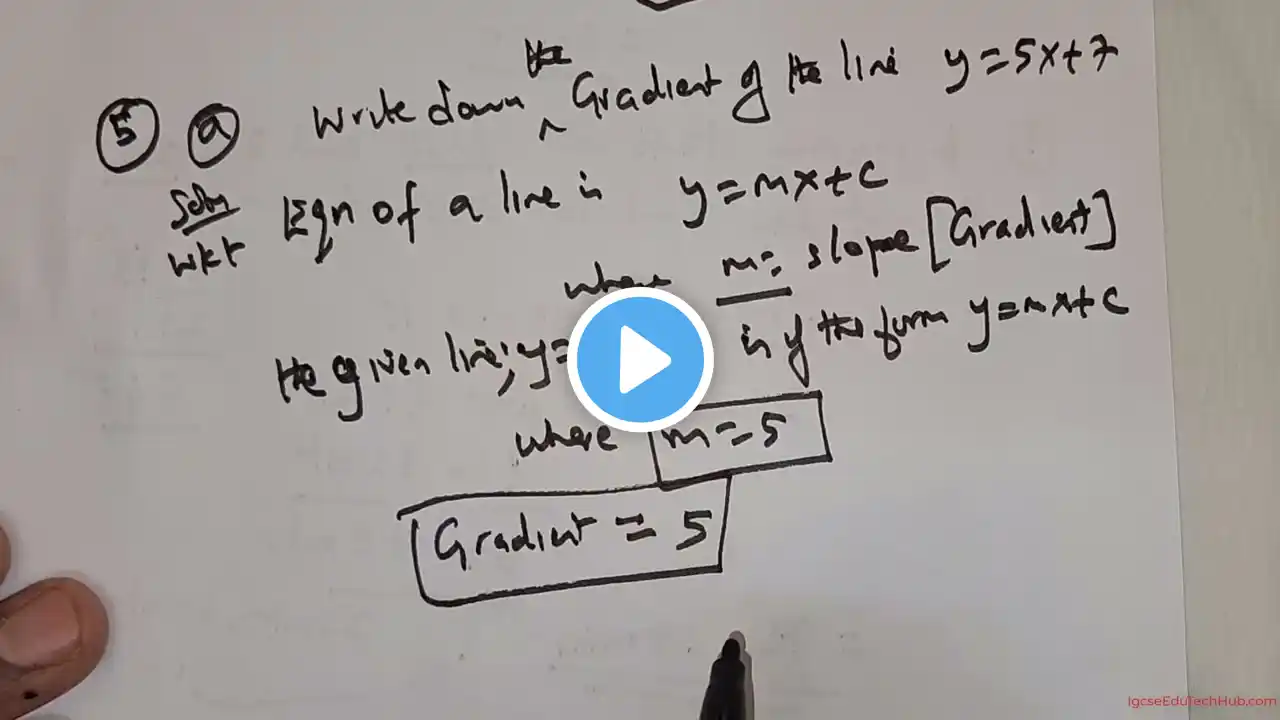 5 a Write down the Gradient of the line y=5x+7
Soln Eqn of a line is y=mx+c
WKT
where m= slope [Gradient]
the given line; y= is of the form y=mx+c
where m=5
Gradient = 5
IgcseEduTechHub.com